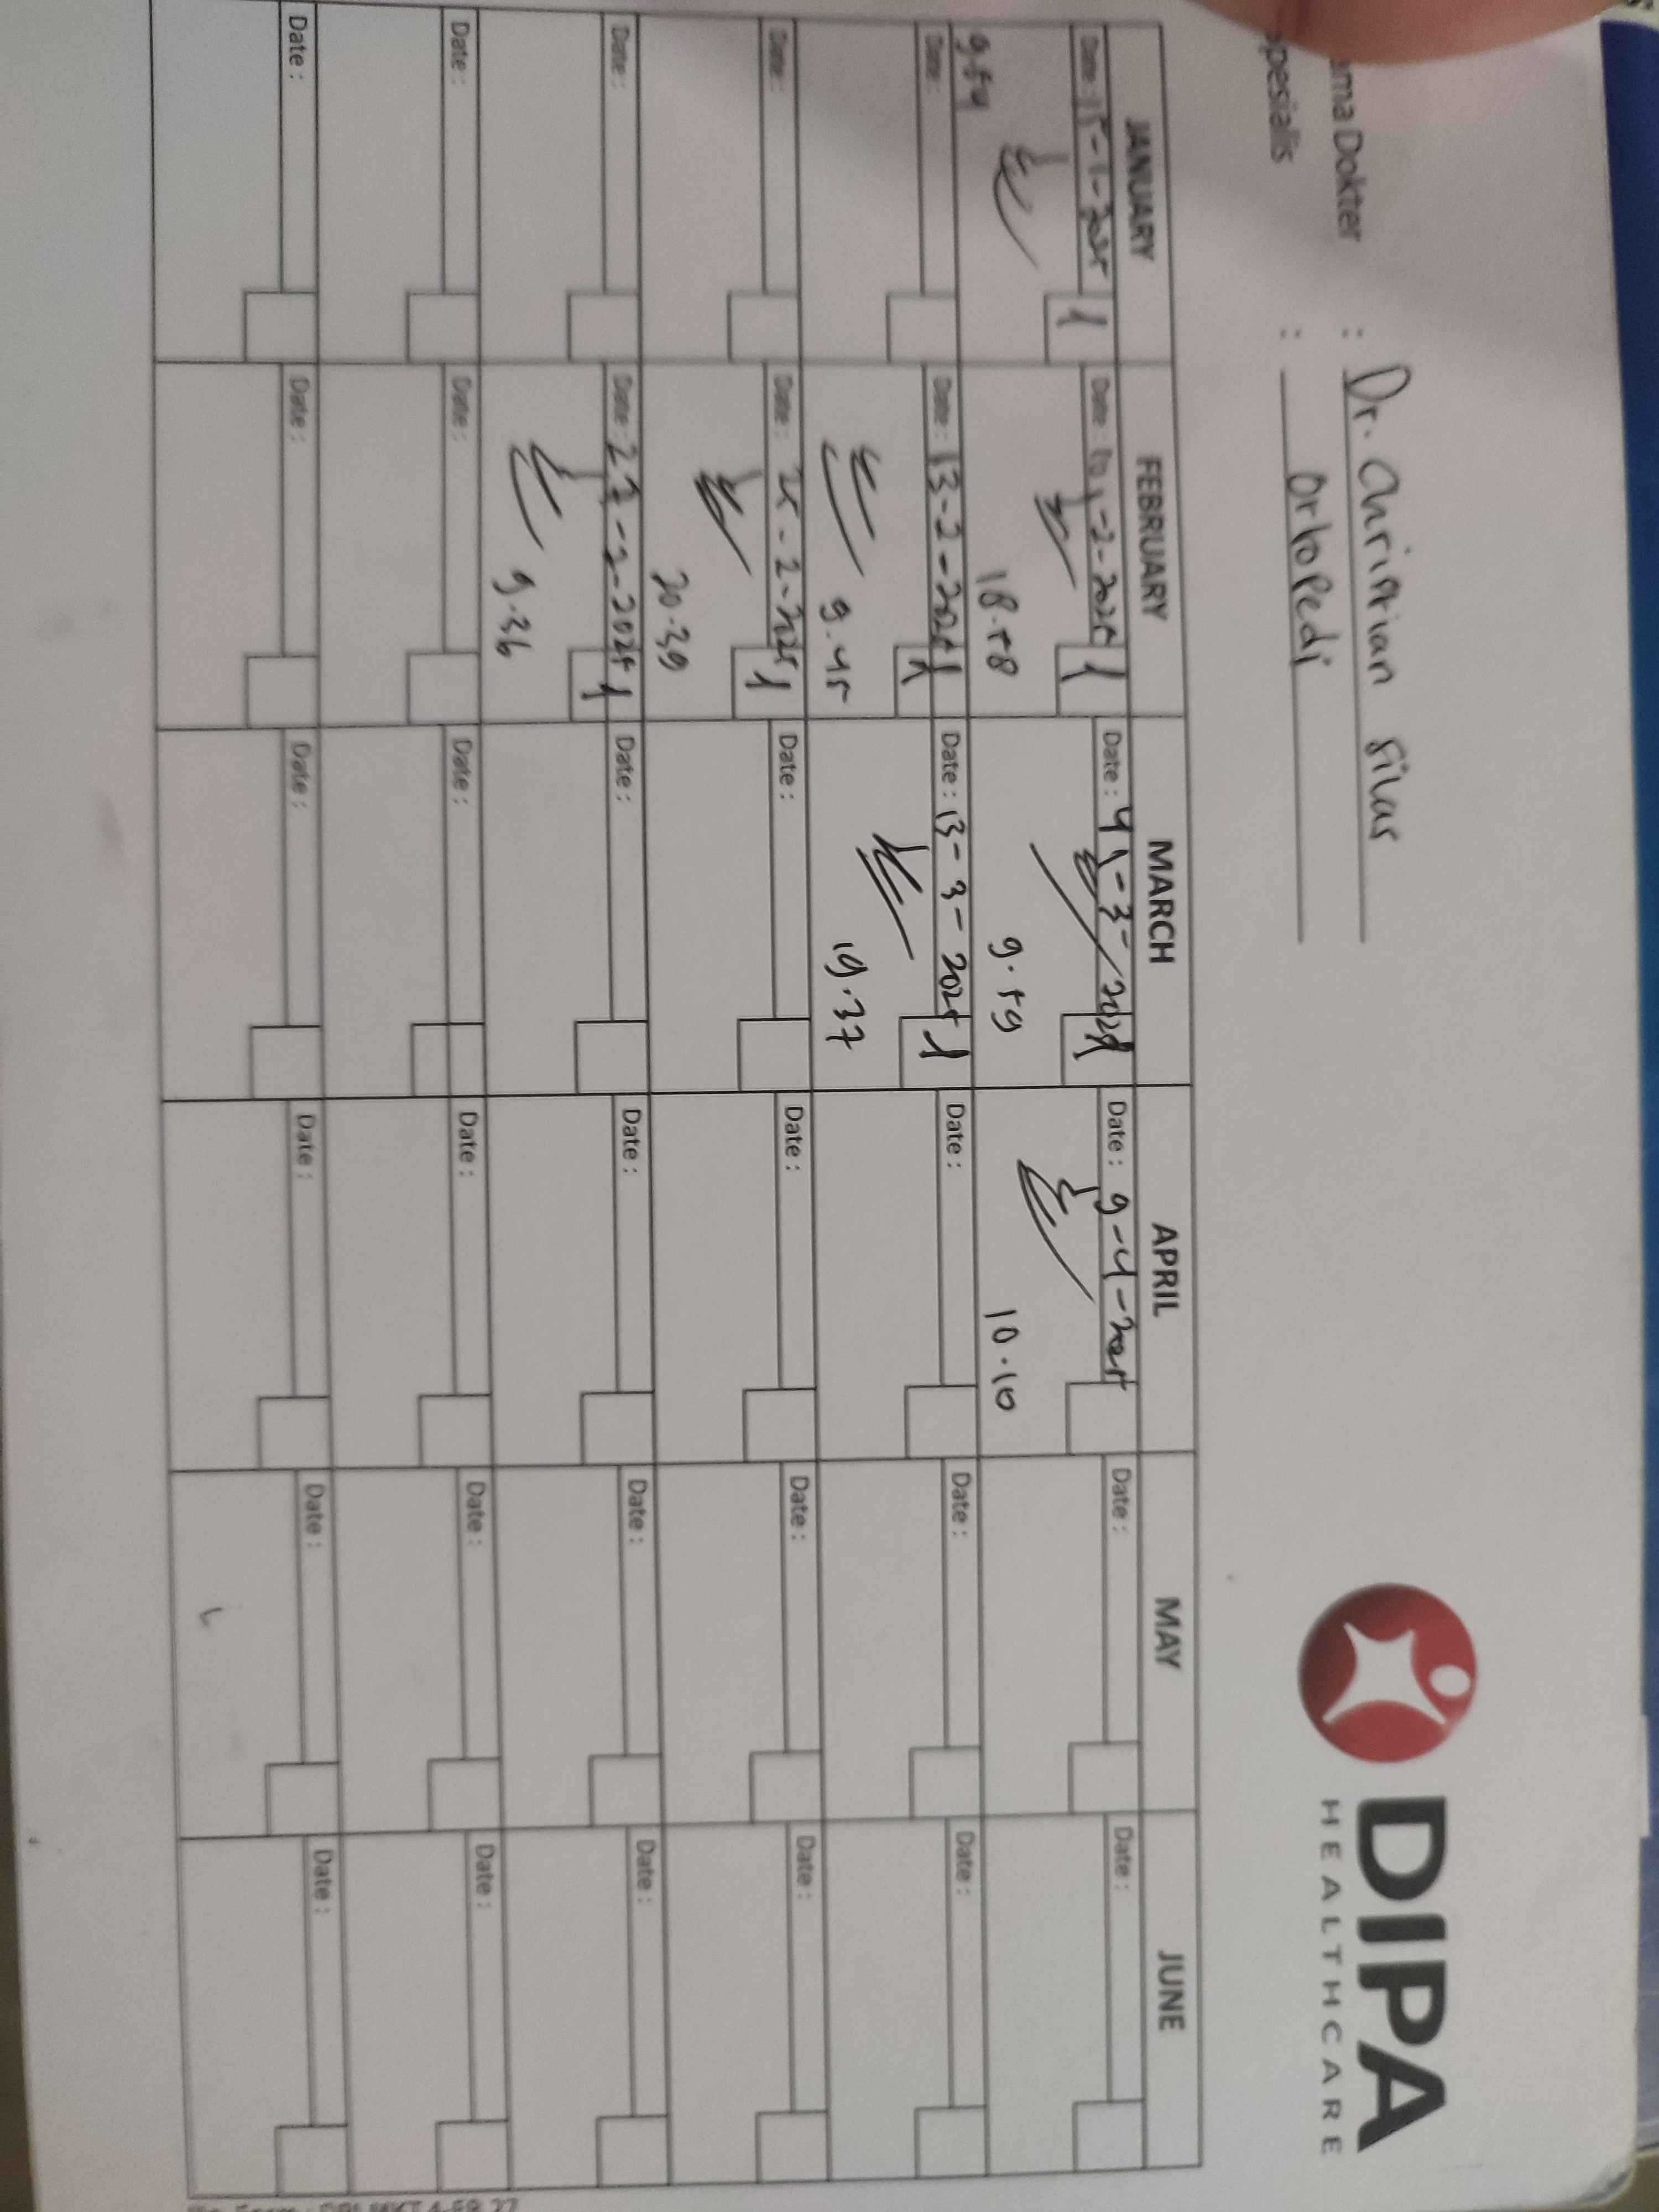 DIPA
HEALTHCARE
ma Dokter : Dr. Christian Silas
pesialis : Ortopedi
JANUARY FEBRUARY MARCH APRIL MAY JUNE
Date : 15-1-2025 1 Date : 10-2-2025 1 Date : 4-3-2025 1 Date : 9-4-2025 Date : Date :
9.54 18.58 9.59 10.10
Date : Date : 13-2-2025 1 Date : 13-3-2025 1 Date : Date : Date :
9.45 19.37
Date : Date : 25-2-2025 1 Date : Date : Date : Date :
20.39
Date : Date : 27-2-2025 1 Date : Date : Date : Date :
9.36
Date : Date : Date : Date : Date : Date :
Date : Date : Date : Date : Date : Date :